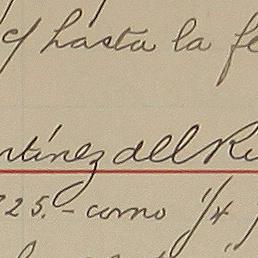 c/ hasta la fe
rtínez del Ru
725.- como 1/4